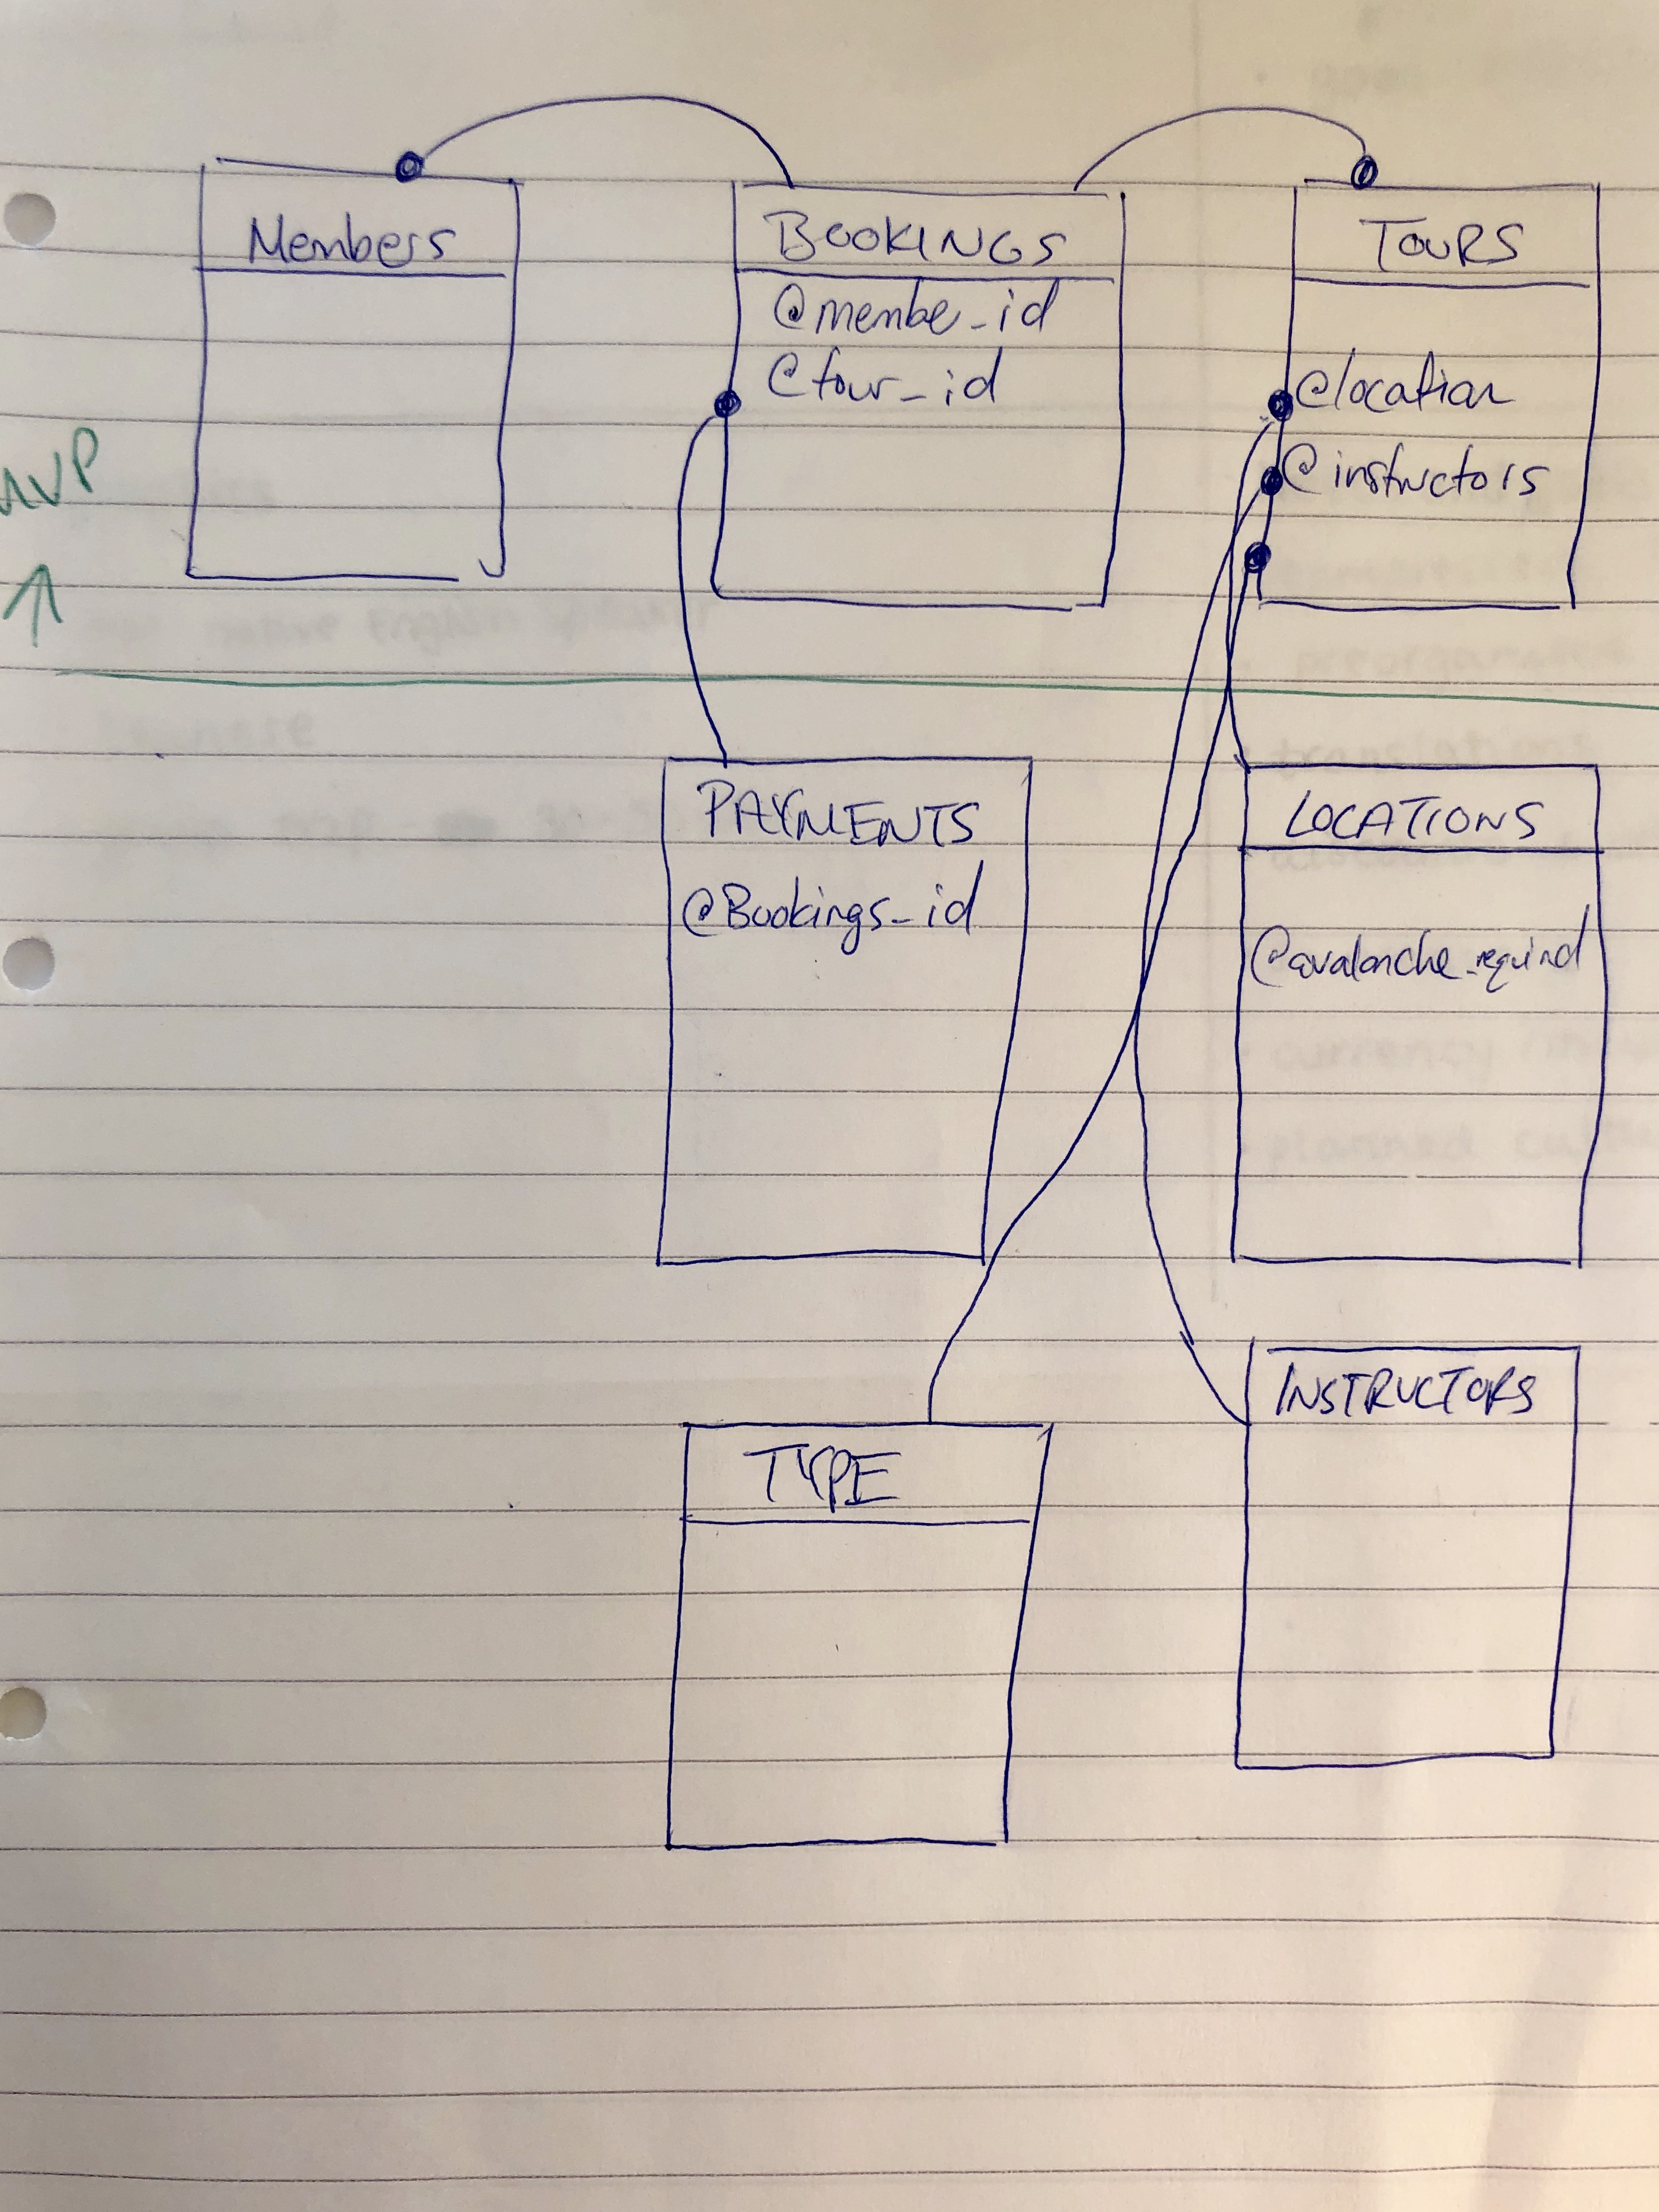 Members
BOOKINGS
@membe_id
@tour_id
TOURS
@location
@instructors
MVP
PAYMENTS
@Bookings_id
LOCATIONS
@avalanche_requird
TYPE
INSTRUCTORS